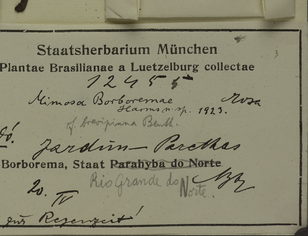 Staatsherbarium München
Plantae Brasilianae a Luetzelburg collectae
12455
Mimosa Borboremae Rosa
Harms n. sp. 1923.
cf. brevipinna Benth.
Jardim Parelhas
Borborema, Staat Parahyba do Norte
Rio Grande do Norte.
20. IV
zur Regenzeit!